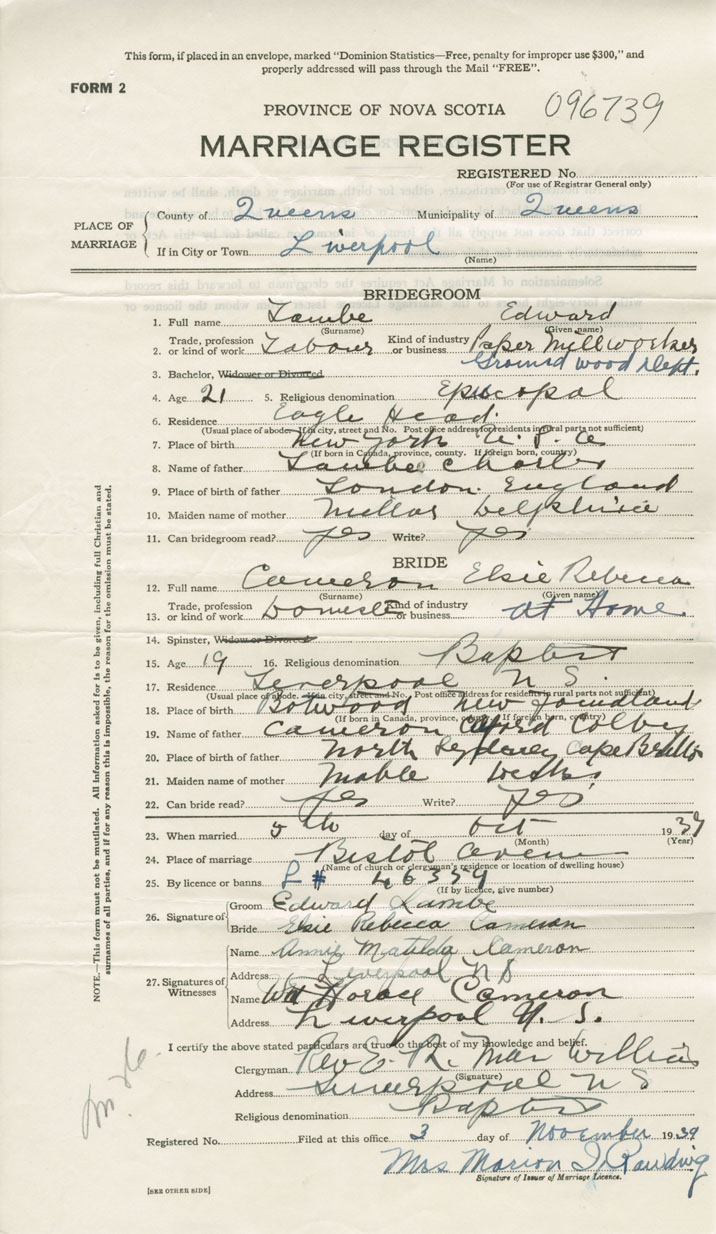 This form, if placed in an envelope, marked "Dominion Statistics—Free, penalty for improper use $300," and
properly addressed will pass through the Mail "FREE".
FORM 2
PROVINCE OF NOVA SCOTIA 096739
MARRIAGE REGISTER
REGISTERED No.
(For use of Registrar General only)
PLACE OF MARRIAGE
County of Queens Municipality of Queens
If in City or Town Liverpool
(Name)
BRIDEGROOM
1. Full name Lambe Edward
(Surname) (Given name)
2. Trade, profession or kind of work Labour Kind of industry or business Paper Mill worker
Ground wood Dept.
3. Bachelor, Widower or Divorced
4. Age 21 5. Religious denomination Episcopal
6. Residence Eagle Head.
(Usual place of abode. If in city, street and No. Post office address for residents in rural parts not sufficient)
7. Place of birth New York U.S.A
(If born in Canada, province, county. If foreign born, country)
8. Name of father Lambe Charles
9. Place of birth of father London. England
10. Maiden name of mother
11. Can bridegroom read? yes Write? yes
BRIDE
12. Full name Cameron Elsie Rebecca
(Surname) (Given name)
13. Trade, profession or kind of work Domestic Kind of industry or business at Home.
14. Spinster, Widow or Divorced
15. Age 19 16. Religious denomination Baptist
17. Residence Liverpool N S.
(Usual place of abode. If in city, street and No. Post office address for residents in rural parts not sufficient)
18. Place of birth Botwood New Foundland
(If born in Canada, province, county. If foreign born, country)
19. Name of father Cameron Colby
20. Place of birth of father North Sydney Cape Breton
21. Maiden name of mother Mable
22. Can bride read? yes Write? yes
23. When married 5th day of Oct 1939
(Month) (Year)
24. Place of marriage
(Name of church or clergyman's residence or location of dwelling house)
25. By licence or banns L # 46339
(If by licence, give number)
26. Signature of
Groom Edward Lambe
Bride Elsie Rebecca Cameron
27. Signatures of Witnesses
Name Annie Matilda Cameron
Address Liverpool N S
Name Wm Horace Cameron
Address Liverpool N. S.
I certify the above stated particulars are true to the best of my knowledge and belief.
Clergyman Rev E. R. Mac William
(Signature)
Address Liverpool N S
Religious denomination Baptist
Registered No. Filed at this office 3 day of November 1939
Mrs Marion I. Rawding
Signature of Issuer of Marriage Licence.
[SEE OTHER SIDE]
NOTE.—This form must not be mutilated. All information asked for is to be given, including full Christian and
surnames of all parties, and if for any reason this is impossible, the reason for the omission must be stated.